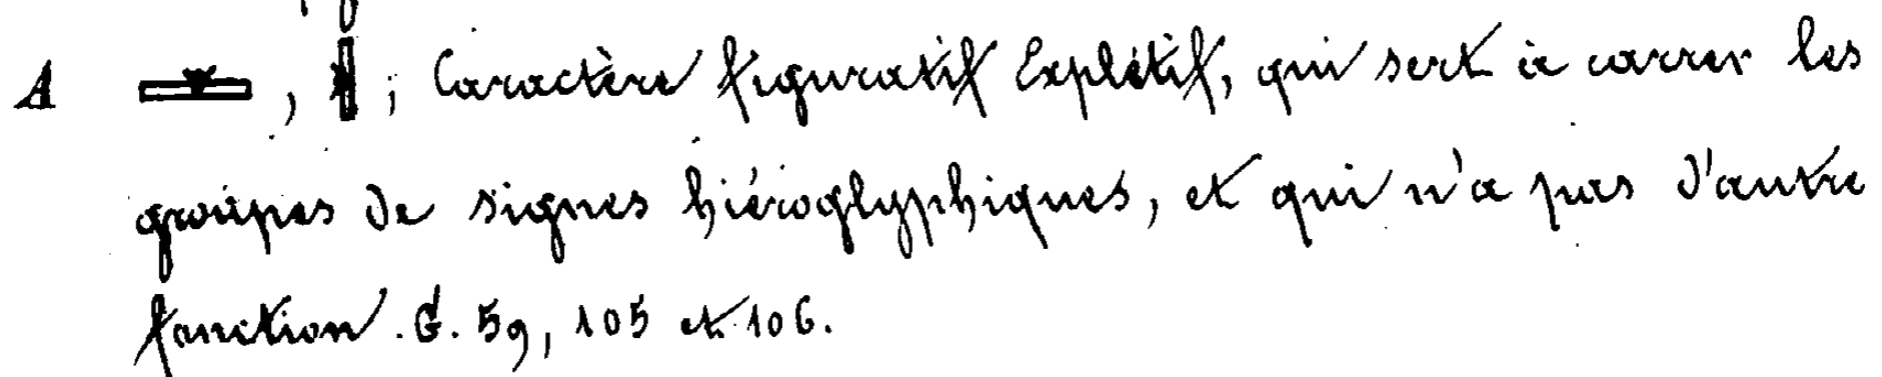 A 𓏛, 𓏜; Caractère figuratif Explétif, qui sert à carrer les
groupes de signes hiéroglyphiques, et qui n'a pas d'autre
fonction. G. 59, 105 et 106.